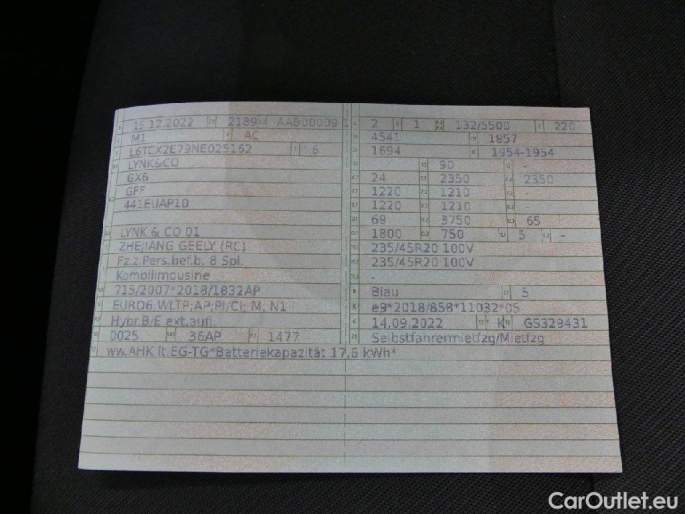 15.12.2022 2189 AAB00009 2 1 132/5500 220
M1 AC 4541 1857
L6TCX2E79NE025162 6 1694 1954-1954
LYNK&CO 90 -
GX6 24 2350 - 2350
GFF 1220 1210 -
441EUAP10 1220 1210 -
69 3750 65
LYNK & CO 01 1800 750 5 -
ZHEJIANG GEELY (RC) 235/45R20 100V
Fz.z.Pers.bef.b. 8 Spl. 235/45R20 100V
Kombilimousine -
715/2007*2018/1832AP Blau 5
EURO6;WLTP;AP;PI/CI; M, N1 e9*2018/858*11032*05
Hybr.B/E ext.aufl. 14.09.2022 K GS329431
0025 36AP 1477 Selbstfahrermietfzg/Mietfzg
ww.AHK lt.EG-TG*Batteriekapazität 17,6 kWh*
CarOutlet.eu